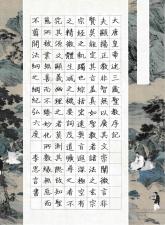 大唐皇帝述三藏聖教序記
夫顯揚正教非智無以廣其文崇闡微言非
賢莫能定其旨蓋真如聖教者諸法之玄宗
眾經之軌躅也綜括宏遠奧旨遐深極空有
之精微體生滅之機要詞茂道曠尋之者不
究其源文顯義幽履之者莫測其際故知聖
慈所被業無善而不臻妙化所敷緣無惡而
不翦開法網之綱紀弘六度
李忠言書